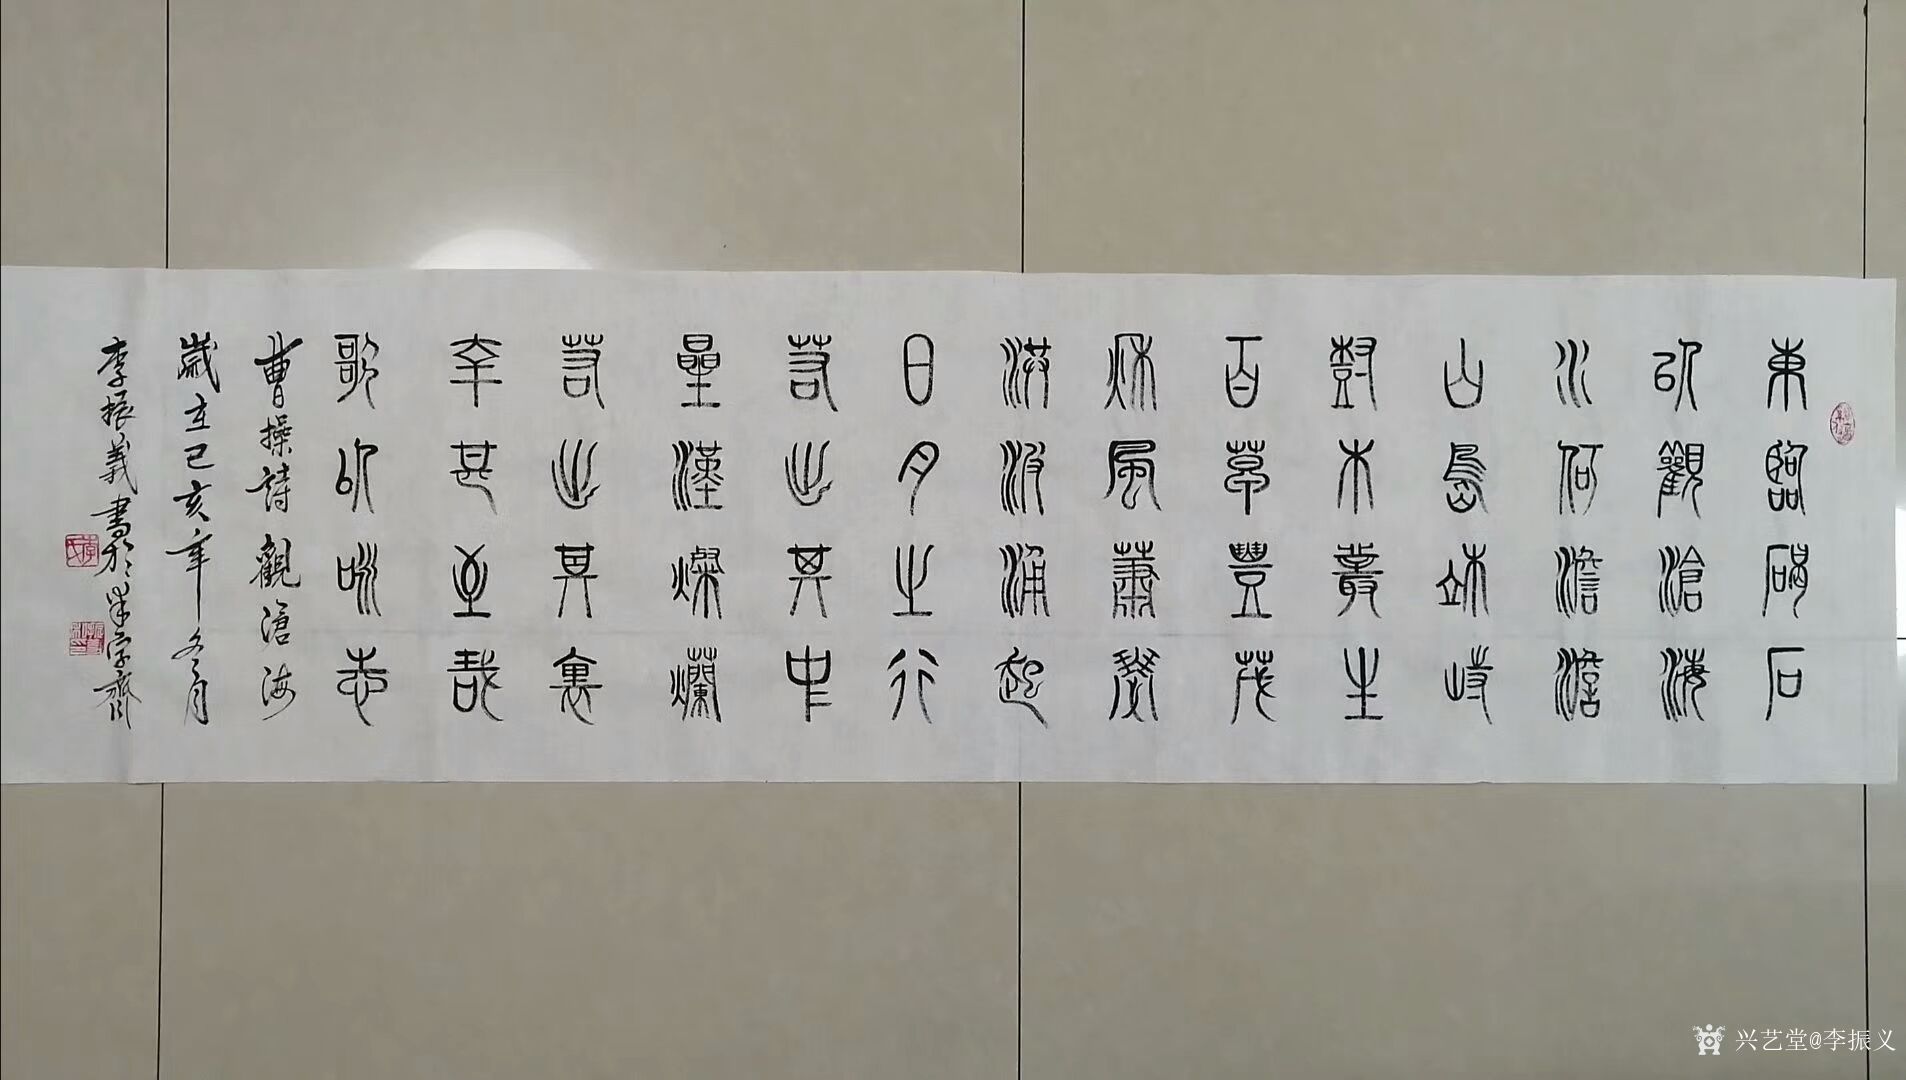 東臨碣石
以觀滄海
水何澹澹
山島竦峙
樹木叢生
百草豐茂
秋風蕭瑟
洪波涌起
日月之行
若出其中
星漢燦爛
若出其裏
幸甚至哉
歌以咏志
曹操詩觀滄海
歲在己亥年冬月
李振義書於字齋
兴艺堂@李振义